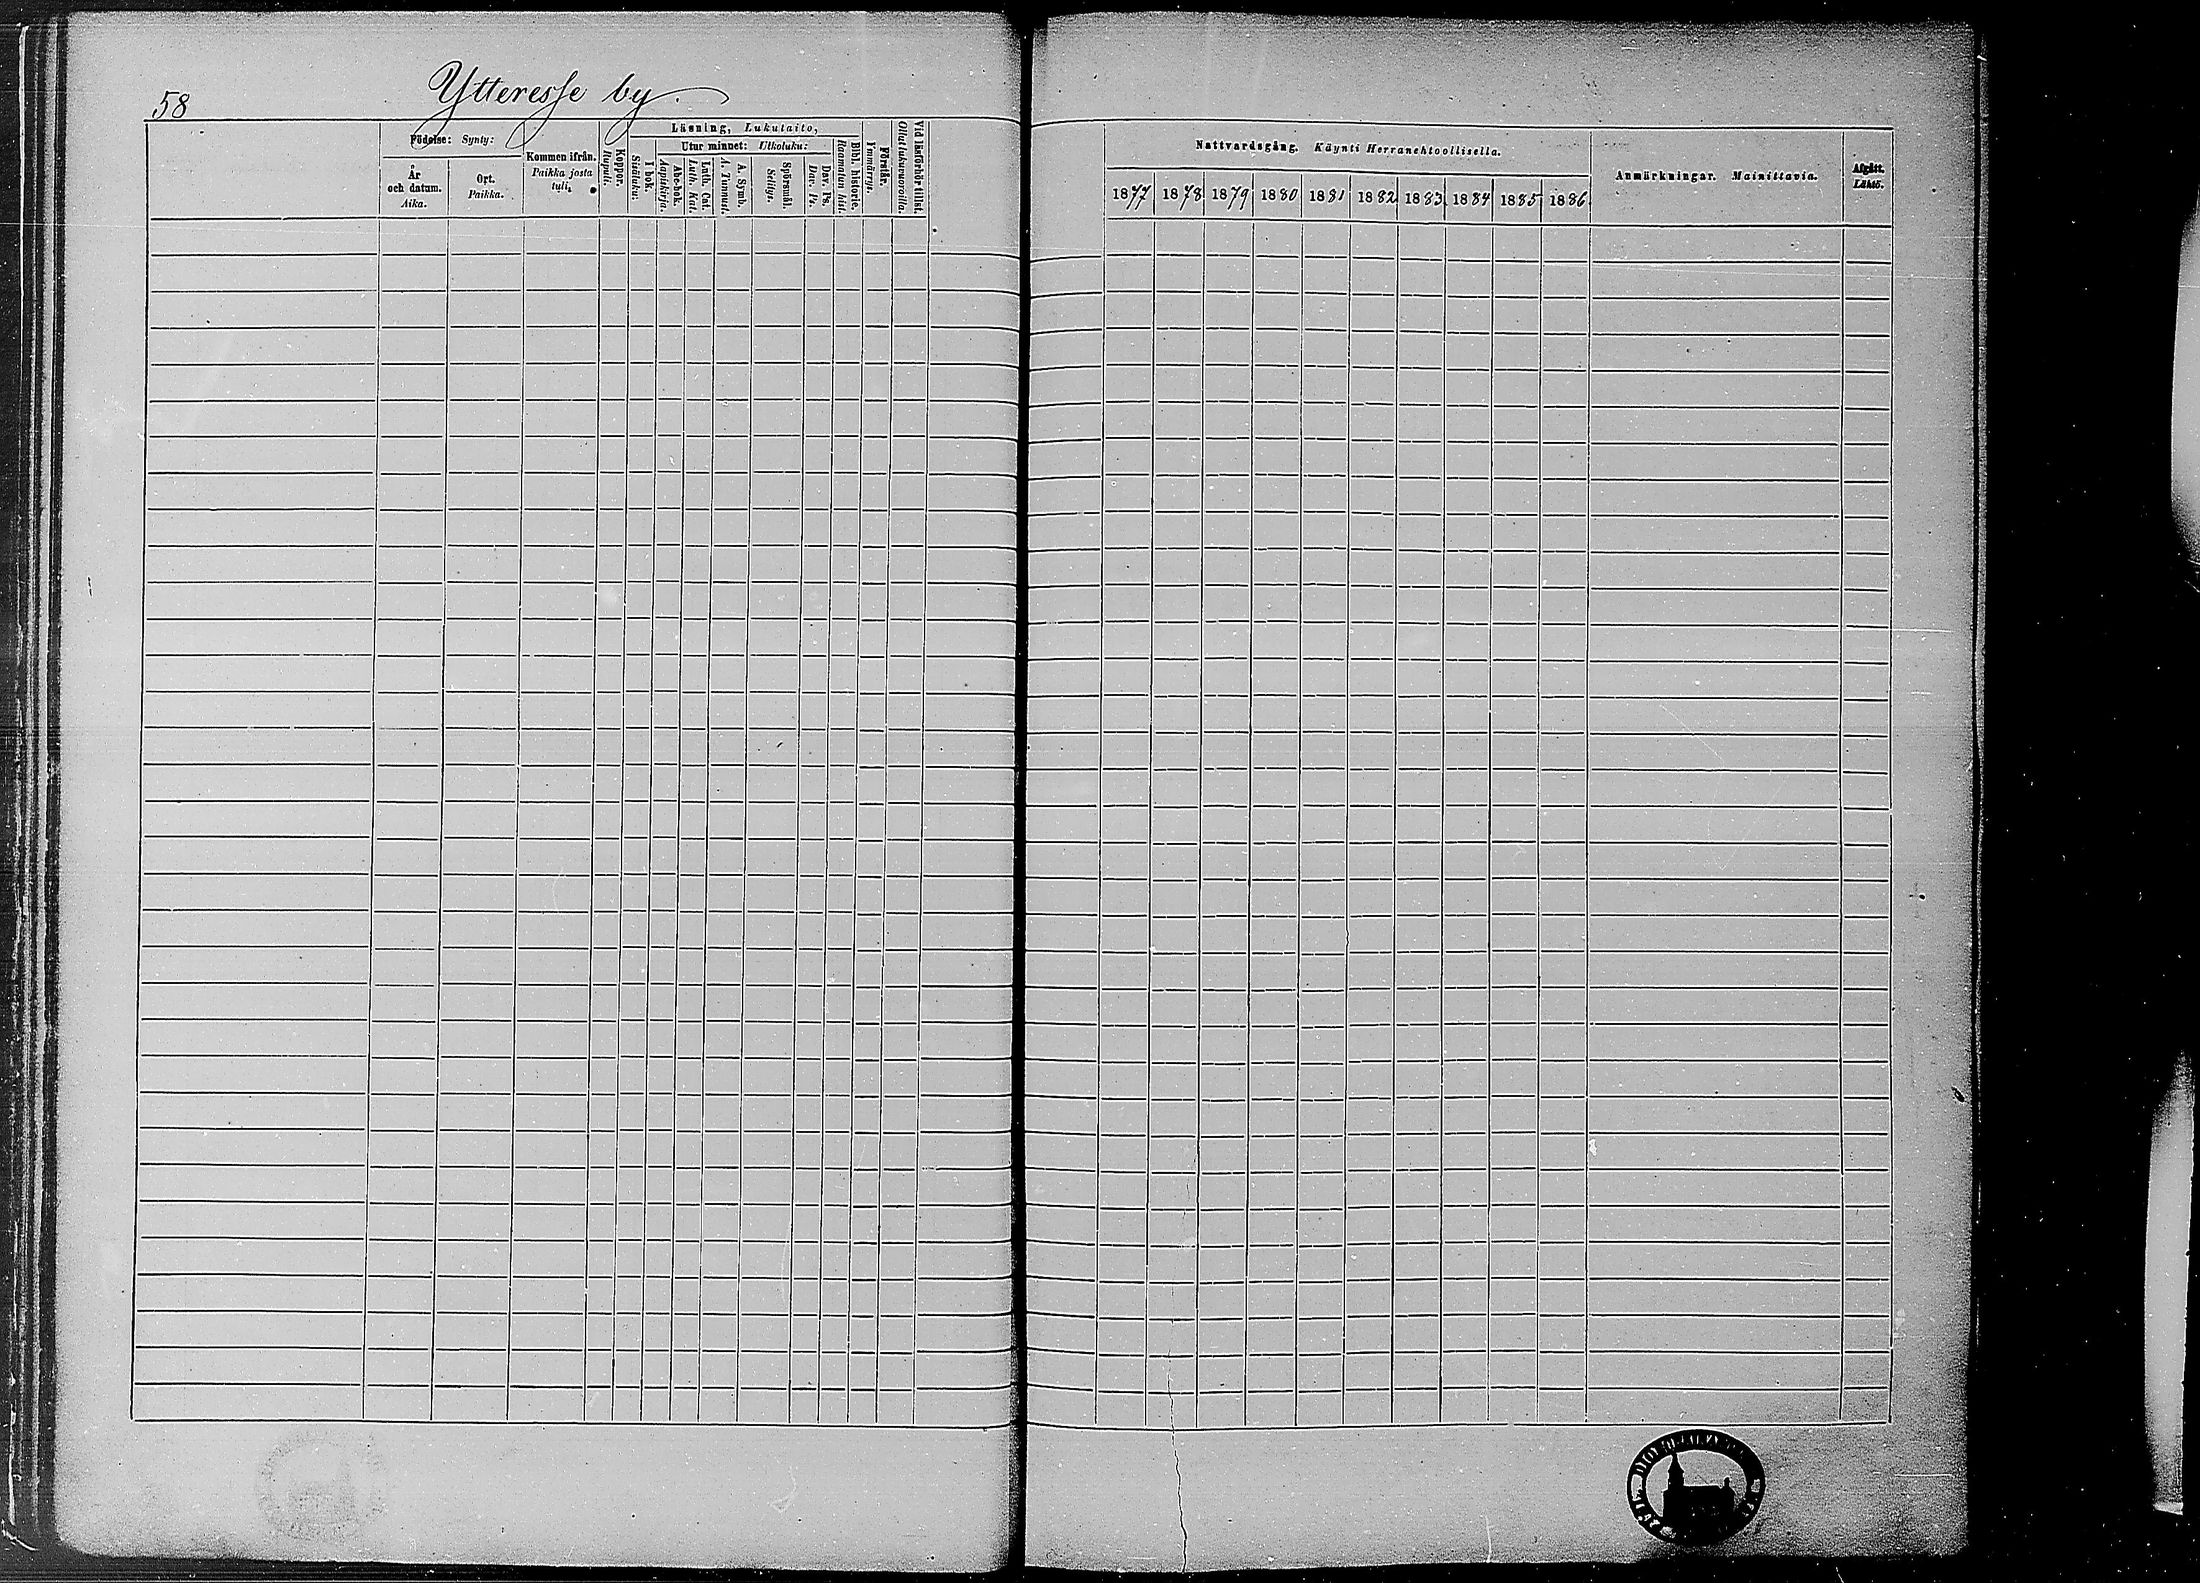 58
Ytteresse by.
Födelse: Synty:
År och datum. Aika.
Ort. Paikka.
Kommen ifrån. Paikka josta tuli.
Koppor. Rupuli.
Läsning, Lukutaito,
I bok. Sisäluku:
Utur minnet: Ulkoluku:
Abc-bok. Aapiskirja.
Luth. Cat. Luth. Kat.
A. Symb. A. Tunnust.
Spörsmål. Selitys.
Dav. Ps. Dav. Ps.
Bibl. historie. Raamatun hist.
Förstår. Ymmärrys.
Vid läsförhör tillst. Ollut lukuvuoroilla.
Nattvardsgång. Käynti Herranehtoollisella.
1877 1878 1879 1880 1881 1882 1883 1884 1885 1886
Anmärkningar. Mainittavia.
Afgått. Lähtö.